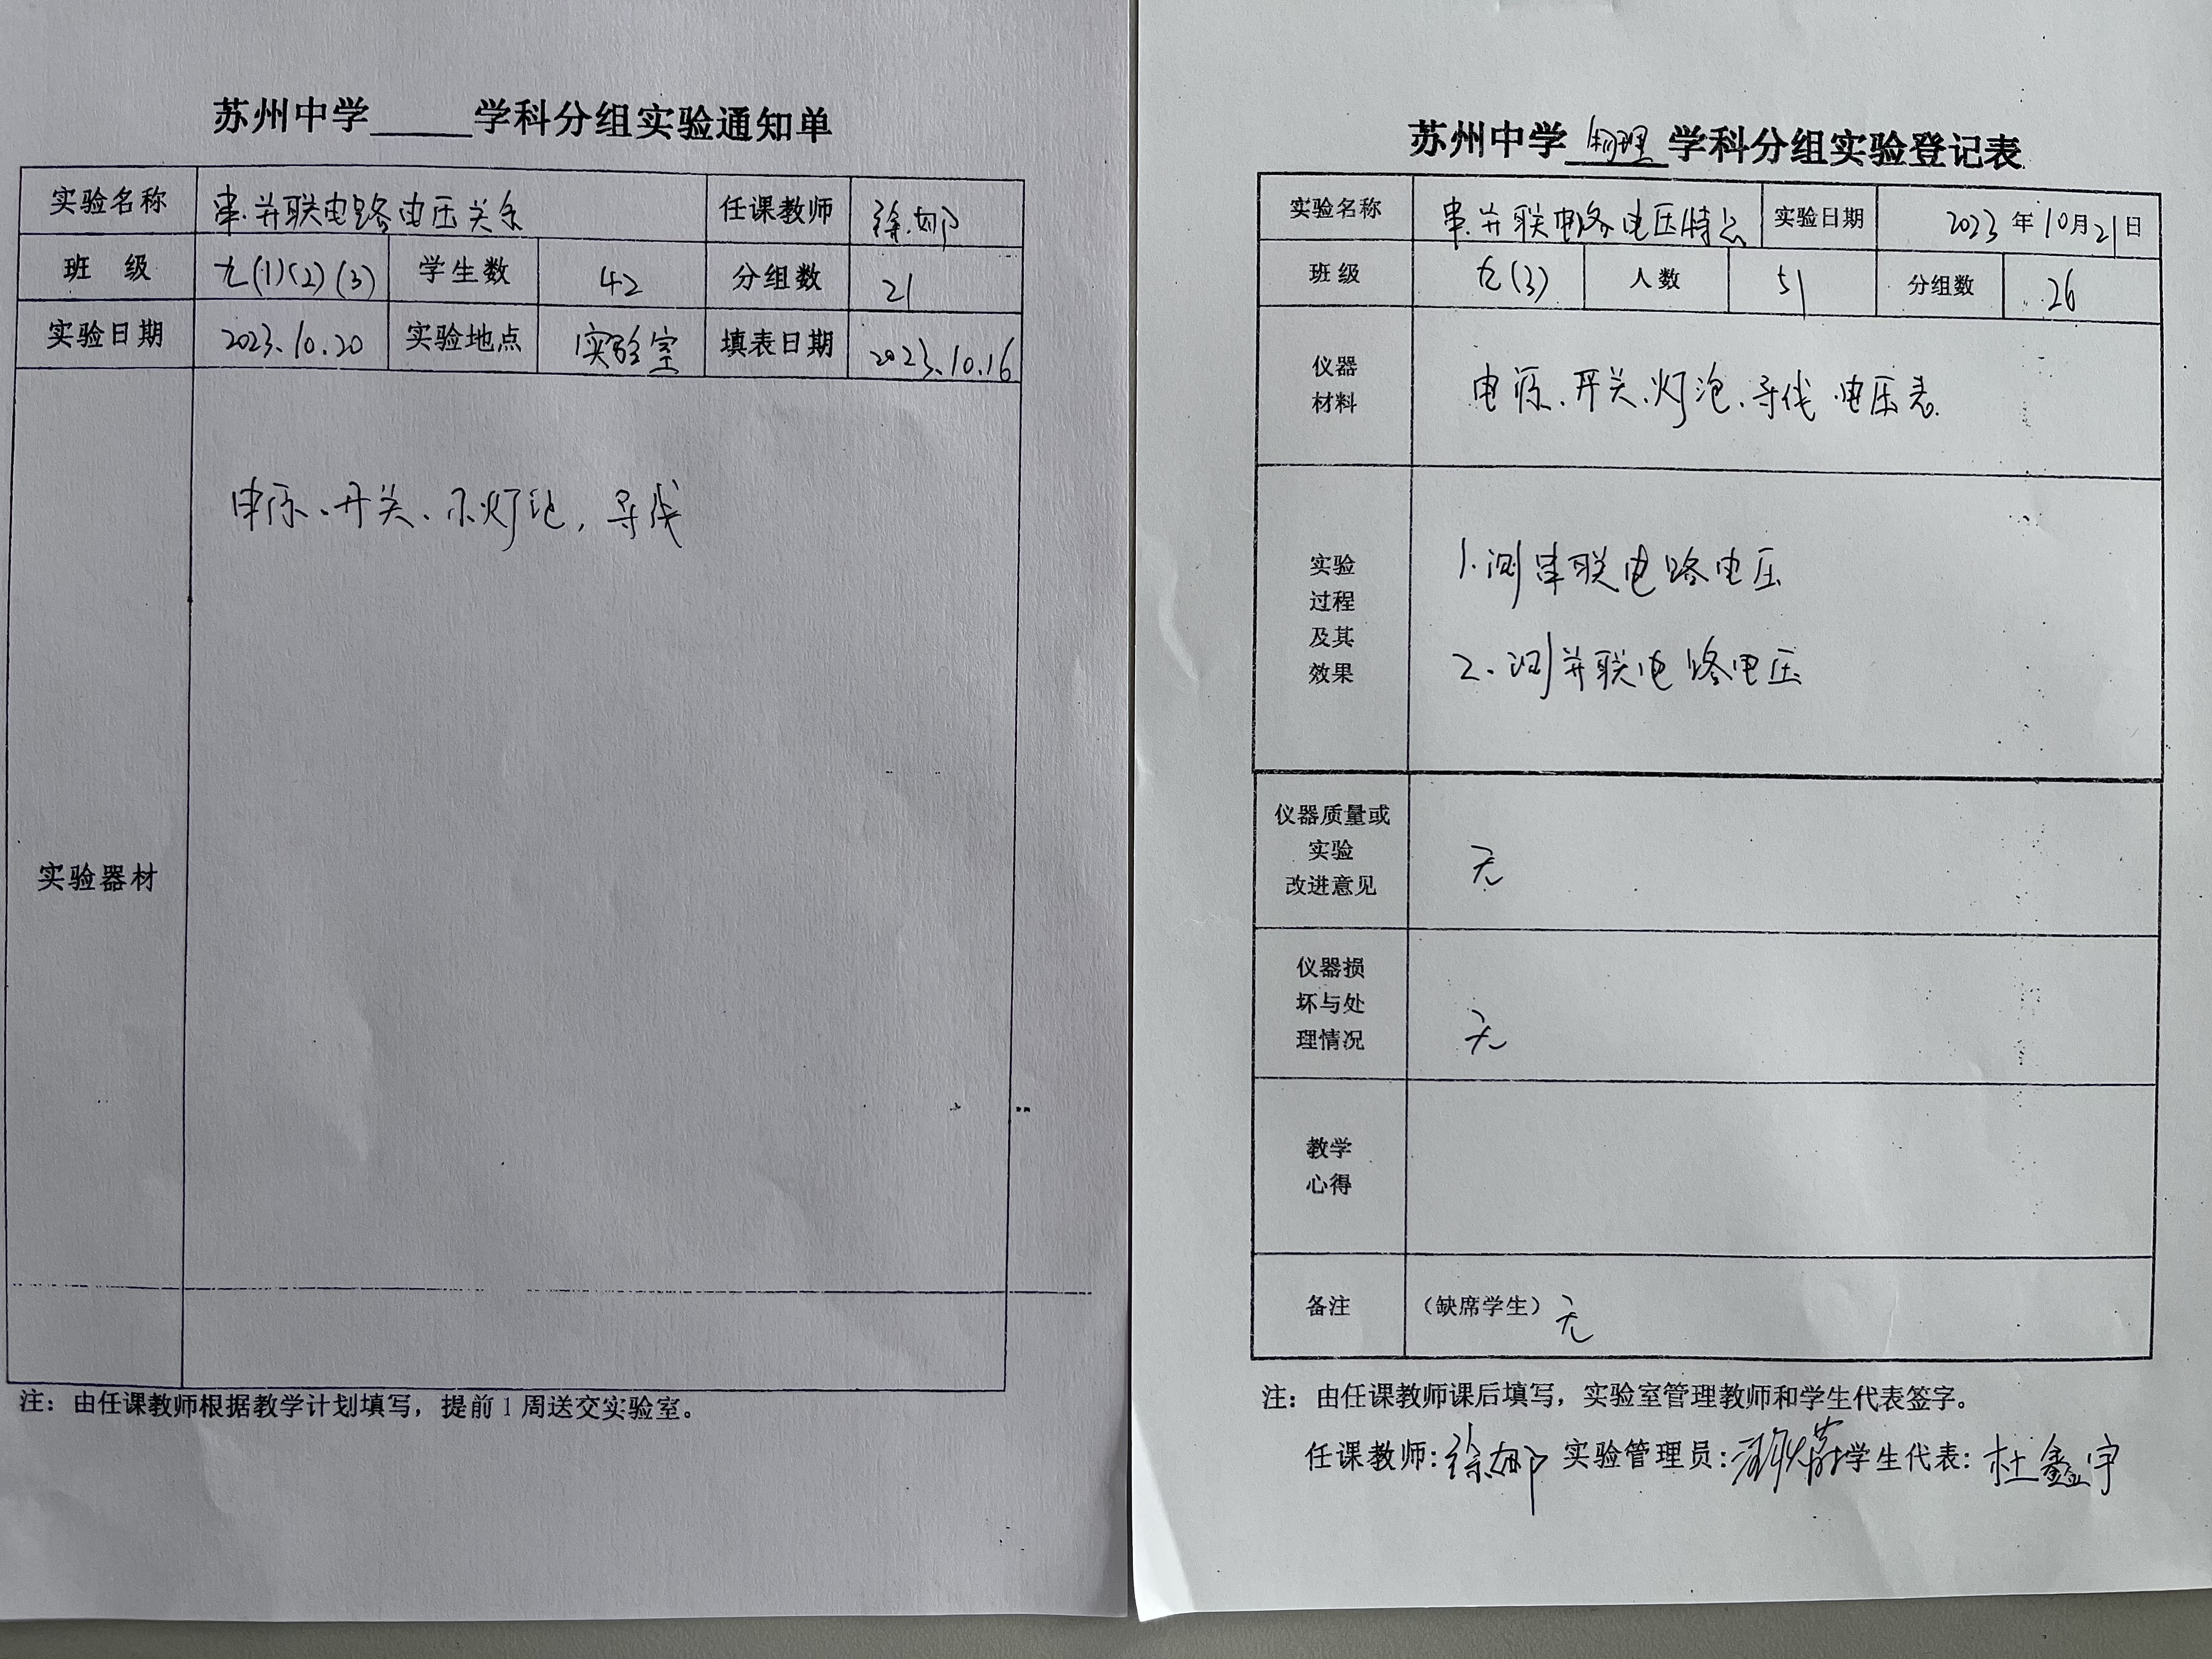 苏州中学_____学科分组实验通知单
实验名称 串.并联电路电压关系 任课教师 徐娜
班 级 九(1)(2)(3) 学生数 42 分组数 21
实验日期 2023.10.20 实验地点 实验室 填表日期 2023.10.16
实验器材 电源、开关、小灯泡，导线
注：由任课教师根据教学计划填写，提前1周送交实验室。
苏州中学 物理 学科分组实验登记表
实验名称 串.并联电路电压特点 实验日期 2023年10月21日
班级 九(3) 人数 51 分组数 26
仪器
材料
电源、开关、灯泡、导线、电压表.
实验
过程
及其
效果
1.测串联电路电压
2.测并联电路电压
仪器质量或
实验
改进意见
无
仪器损
坏与处
理情况
无
教学
心得
备注 （缺席学生）无
注：由任课教师课后填写，实验室管理教师和学生代表签字。
任课教师：徐娜 实验管理员： 学生代表：杜鑫宇